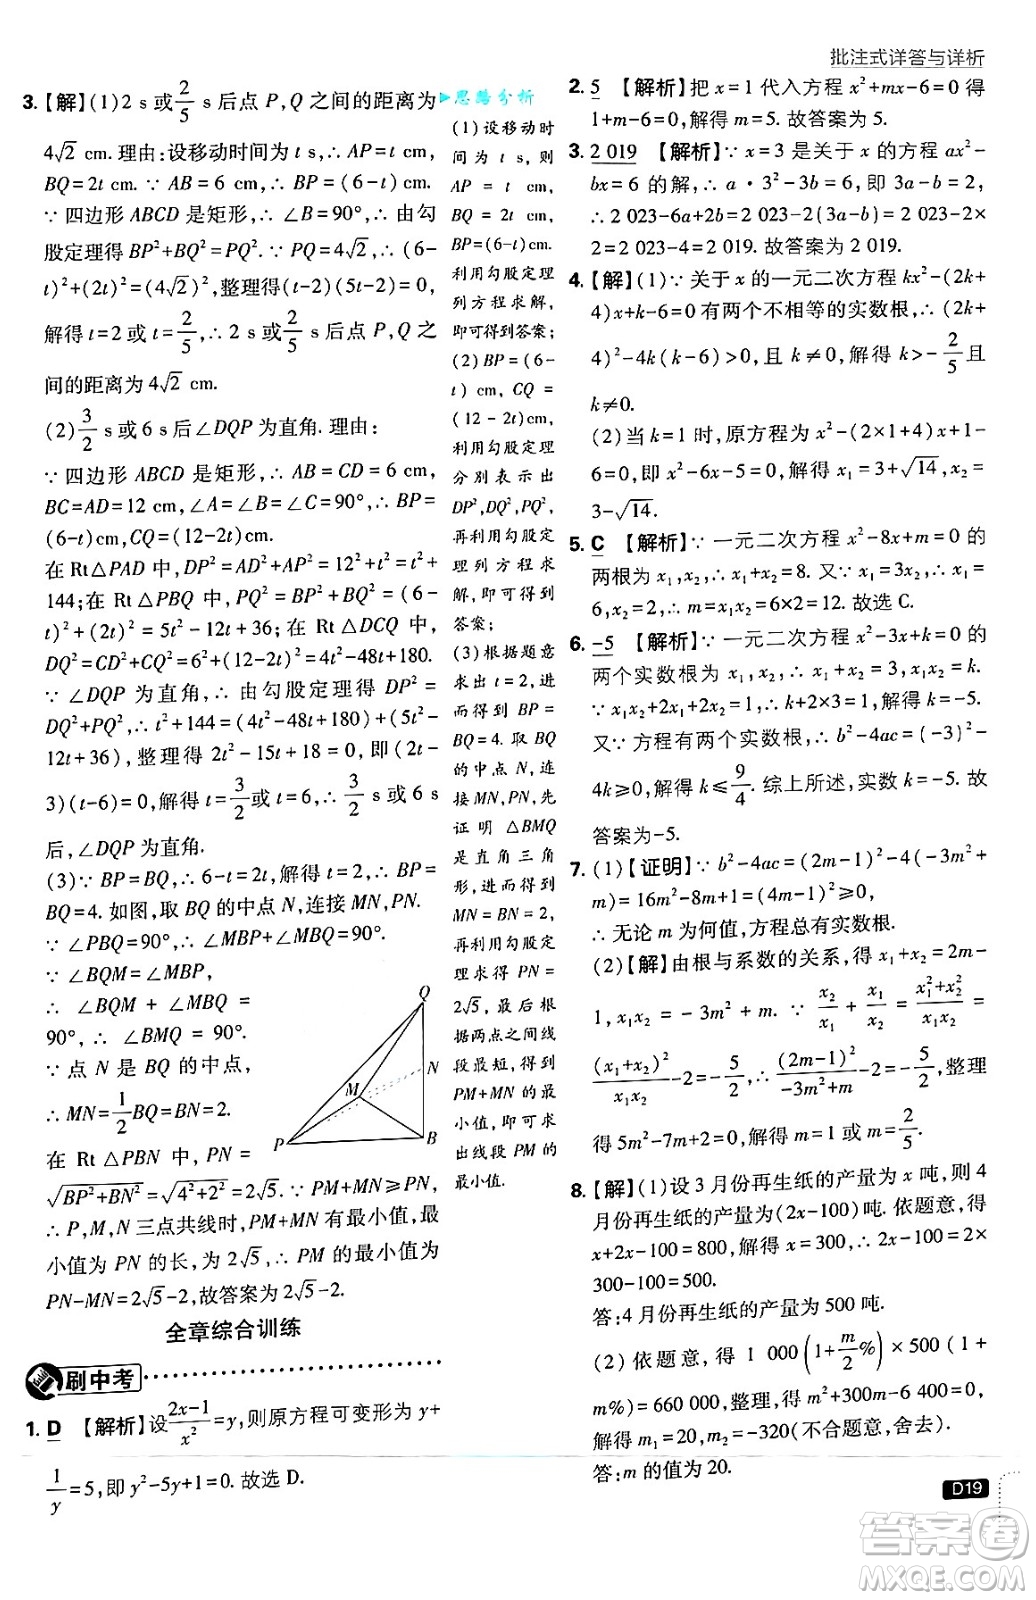 批注式详答与详析
3.【解】(1)2 s或2/5 s后点P,Q之间的距离为
4√2 cm.理由:设移动时间为t s,则AP=t cm,
BQ=2t cm.∵AB=6 cm,∴BP=(6-t)cm.
∵四边形ABCD是矩形,∴∠B=90°,∴由勾
股定理得BP²+BQ²=PQ².∵PQ=4√2,∴(6-
t)²+(2t)²=(4√2)²,整理得(t-2)(5t-2)=0,
解得t=2或t=2/5,∴2 s或2/5 s后点P,Q之
间的距离为4√2 cm.
(2)3/2 s或6 s后∠DQP为直角.理由:
∵四边形ABCD是矩形,∴AB=CD=6 cm,
BC=AD=12 cm,∠A=∠B=∠C=90°,∴BP=
(6-t)cm,CQ=(12-2t)cm.
在Rt△PAD中,DP²=AD²+AP²=12²+t²=t²+
144;在Rt△PBQ中,PQ²=BP²+BQ²=(6-
t)²+(2t)²=5t²-12t+36;在Rt△DCQ中,
DQ²=CD²+CQ²=6²+(12-2t)²=4t²-48t+180.
∵∠DQP为直角,∴由勾股定理得DP²=
DQ²+PQ²,∴t²+144=(4t²-48t+180)+(5t²-
12t+36),整理得2t²-15t+18=0,即(2t-
3)(t-6)=0,解得t=3/2或t=6,∴3/2 s或6 s
后,∠DQP为直角.
(3)∵BP=BQ,∴6-t=2t,解得t=2,∴BP=
BQ=4.如图,取BQ的中点N,连接MN,PN.
∵∠PBQ=90°,∴∠MBP+∠MBQ=90°.
∵∠BQM=∠MBP,
∴∠BQM+∠MBQ=
90°,∴∠BMQ=90°.
∵点N是BQ的中点,
∴MN=1/2BQ=BN=2.
在Rt△PBN中,PN=
√(BP²+BN²)=√(4²+2²)=2√5.∵PM+MN≥PN,
∴P,M,N三点共线时,PM+MN有最小值,最
小值为PN的长,为2√5,∴PM的最小值为
PN-MN=2√5-2,故答案为2√5-2.
Q
N
M
P
B
全章综合训练
刷中考
1.D【解析】设(2x-1)/x²=y,则原方程可变形为y+
1/y=5,即y²-5y+1=0.故选D.
思路分析
(1)设移动时
间为t s,则
AP=t cm,
BQ=2t cm,
BP=(6-t)cm.
利用勾股定理
列方程求解,
即可得到答案;
(2)BP=(6-
t)cm,CQ=
(12-2t)cm,
利用勾股定理
分别表示出
DP²,DQ²,PQ²,
再利用勾股定
理列方程求
解,即可得到
答案;
(3)根据题意
求出t=2,进
而得到BP=
BQ=4.取BQ
的中点N,连
接MN,PN,先
证明△BMQ
是直角三角
形,进而得到
MN=BN=2,
再利用勾股定
理求得PN=
2√5,最后根
据两点之间线
段最短,得到
PM+MN的最
小值,即可求
出线段PM的
最小值.
2.5【解析】把x=1代入方程x²+mx-6=0得
1+m-6=0,解得m=5.故答案为5.
3.2 019【解析】∵x=3是关于x的方程ax²-
bx=6的解,∴a·3²-3b=6,即3a-b=2,
∴2 023-6a+2b=2 023-2(3a-b)=2 023-2×
2=2 023-4=2 019.故答案为2 019.
4.【解】(1)∵关于x的一元二次方程kx²-(2k+
4)x+k-6=0有两个不相等的实数根,∴(2k+
4)²-4k(k-6)>0,且k≠0,解得k>-2/5且
k≠0.
(2)当k=1时,原方程为x²-(2×1+4)x+1-
6=0,即x²-6x-5=0,解得x₁=3+√14,x₂=
3-√14.
5.C【解析】∵一元二次方程x²-8x+m=0的
两根为x₁,x₂,∴x₁+x₂=8.又∵x₁=3x₂,∴x₁=
6,x₂=2,∴m=x₁x₂=6×2=12.故选C.
6.-5【解析】∵一元二次方程x²-3x+k=0的
两个实数根为x₁,x₂,∴x₁+x₂=3,x₁x₂=k.
∵x₁x₂+2x₁+2x₂=1,∴k+2×3=1,解得k=-5.
又∵方程有两个实数根,∴b²-4ac=(-3)²-
4k≥0,解得k≤9/4.综上所述,实数k=-5.故
答案为-5.
7.(1)【证明】∵b²-4ac=(2m-1)²-4(-3m²+
m)=16m²-8m+1=(4m-1)²≥0,
∴无论m为何值,方程总有实数根.
(2)【解】由根与系数的关系,得x₁+x₂=2m-
1,x₁x₂=-3m²+m.∵x₂/x₁+x₁/x₂=(x₁²+x₂²)/x₁x₂=
(x₁+x₂)²/x₁x₂-2=-5/2,∴(2m-1)²/(-3m²+m)-2=-5/2,整理
得5m²-7m+2=0,解得m=1或m=2/5.
8.【解】(1)设3月份再生纸的产量为x吨,则4
月份再生纸的产量为(2x-100)吨.依题意,得
x+2x-100=800,解得x=300,∴2x-100=2×
300-100=500.
答:4月份再生纸的产量为500吨.
(2)依题意,得1 000(1+m/2%)×500(1+
m%)=660 000,整理,得m²+300m-6 400=0.
解得m₁=20,m₂=-320(不合题意,舍去).
答:m的值为20.
D19
答案卷